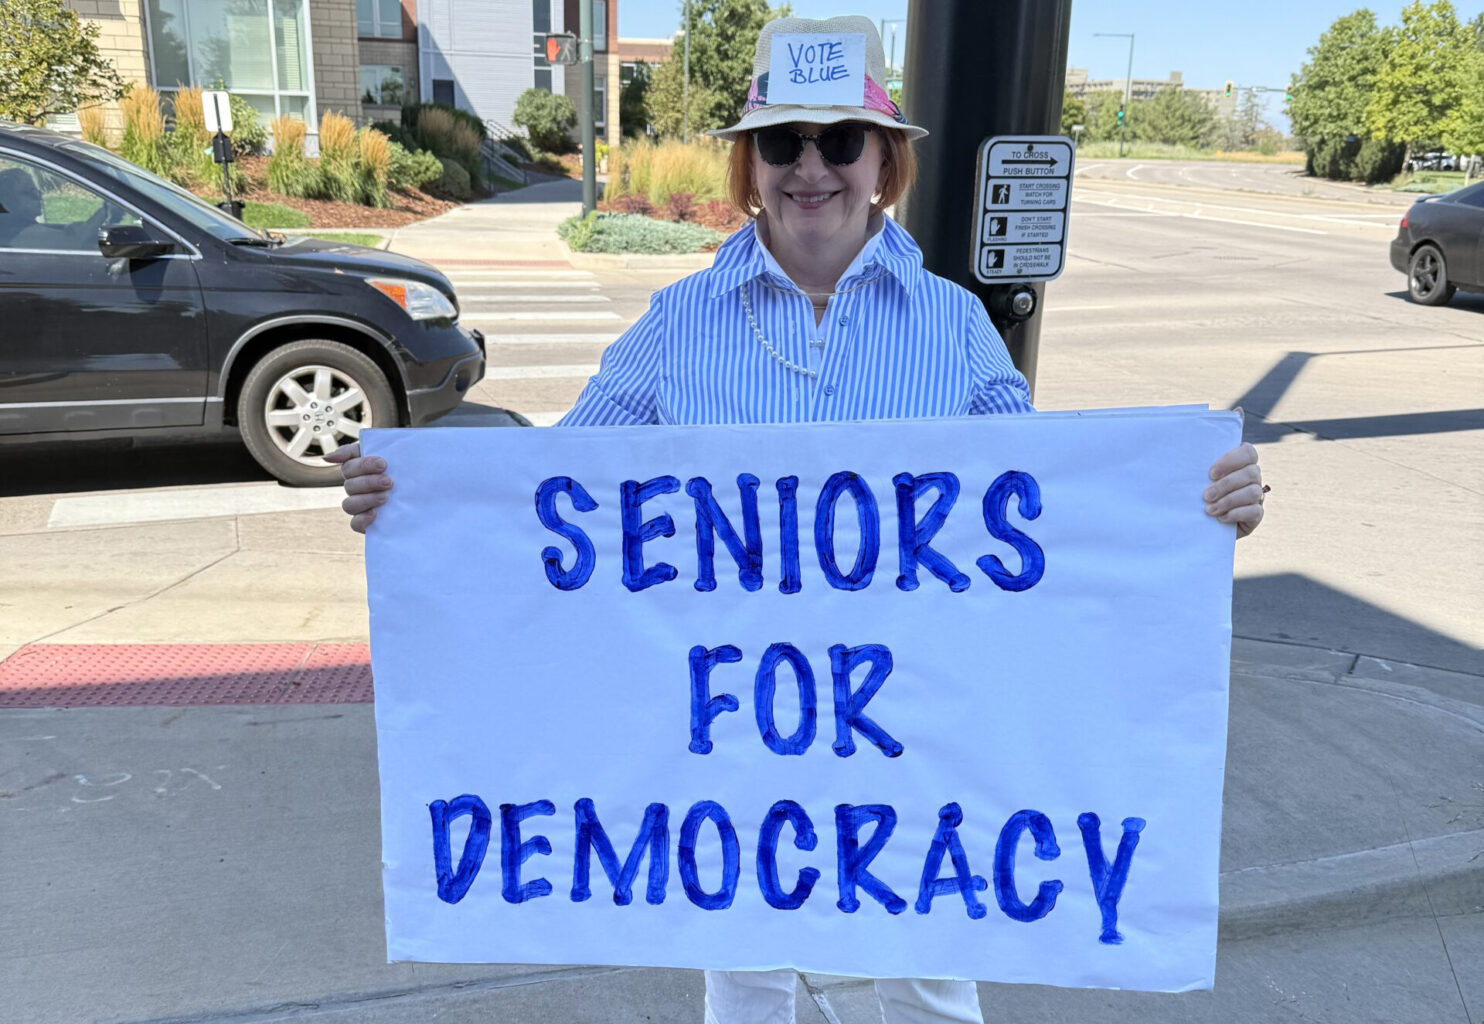 VOTE
BLUE
TO CROSS
PUSH BUTTON
START CROSSING
WATCH FOR
TURNING CARS
DON'T START
FINISH CROSSING
IF STARTED
FLASHING
PEDESTRIANS
SHOULD NOT BE
IN CROSSWALK
STEADY
SENIORS
FOR
DEMOCRACY